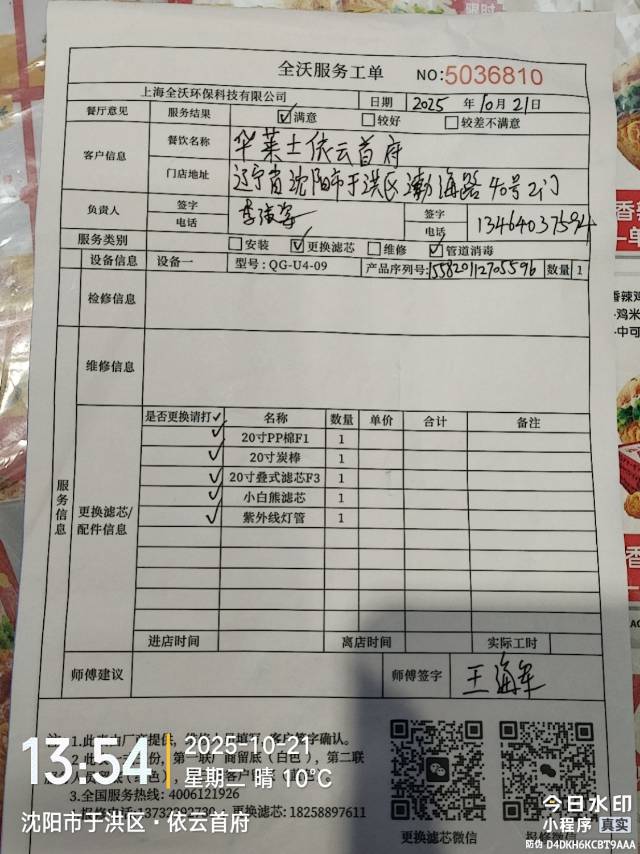 全沃服务工单 NO:5036810
上海全沃环保科技有限公司 日期 2025 年 10 月 21 日
餐厅意见 服务结果 ☑满意 ☐较好 ☐较差不满意
客户信息 餐饮名称 华莱士依云首府
门店地址 辽宁省沈阳市于洪区渤海路40号2门
负责人 签字 签字
电话 电话 13464037594
服务类别 ☐安装 ☑更换滤芯 ☐维修 ☑管道消毒
设备信息 设备一 型号:QG-U4-09 产品序列号: 155820112705596 数量 1
检修信息
维修信息
服务信息
更换滤芯/配件信息
是否更换请打✓ 名称 数量 单价 合计 备注
✓ 20寸PP棉F1 1
✓ 20寸炭棒 1
✓ 20寸叠式滤芯F3 1
✓ 小白熊滤芯 1
✓ 紫外线灯管 1
进店时间 离店时间 实际工时
师傅建议 师傅签字 王海军
客户签字确认。
第一联厂商留底(白色),第二联
3.全国服务热线:4006121926
更换滤芯:18258897611
更换滤芯微信 报修微信
13:54 2025-10-21
星期二 晴 10℃
沈阳市于洪区·依云首府
今日水印
小程序 真实
防伪 D4DKH6KCBT9AAA